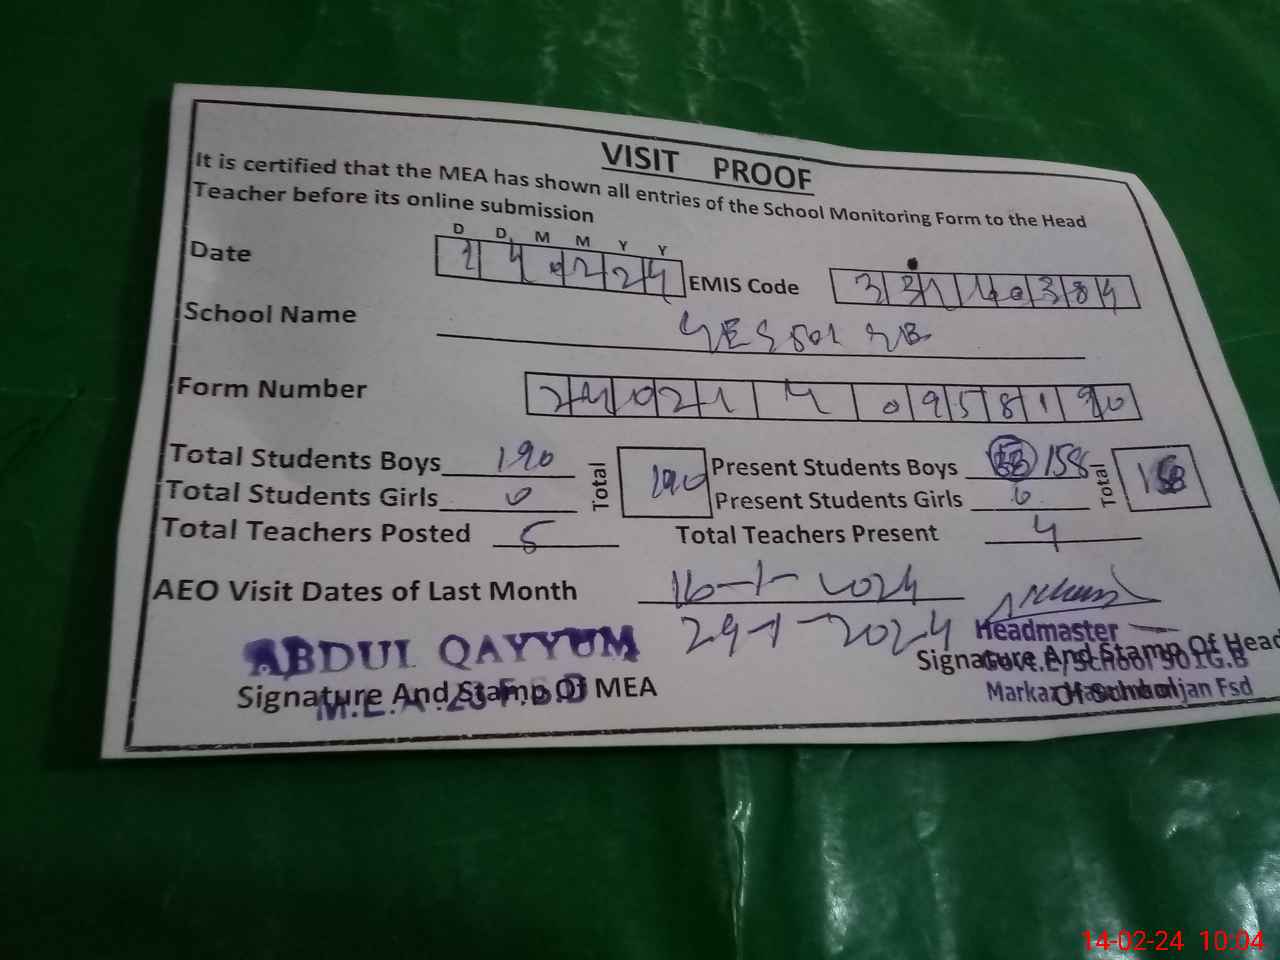 VISIT PROOF
It is certified that the MEA has shown all entries of the School Monitoring Form to the Head
Teacher before its online submission
D D M M Y Y
Date 140224 EMIS Code 33110384
School Name
Form Number
Total Students Boys 190 Total 190 Present Students Boys 158 Total 158
Total Students Girls 0 Present Students Girls 0
Total Teachers Posted 5 Total Teachers Present 4
AEO Visit Dates of Last Month 16-1-2024
29-1-2024
ABDUL QAYYUM Headmaster
Signature And Stamp Of MEA Signature And Stamp Of Head
Of School
14-02-24 10:04